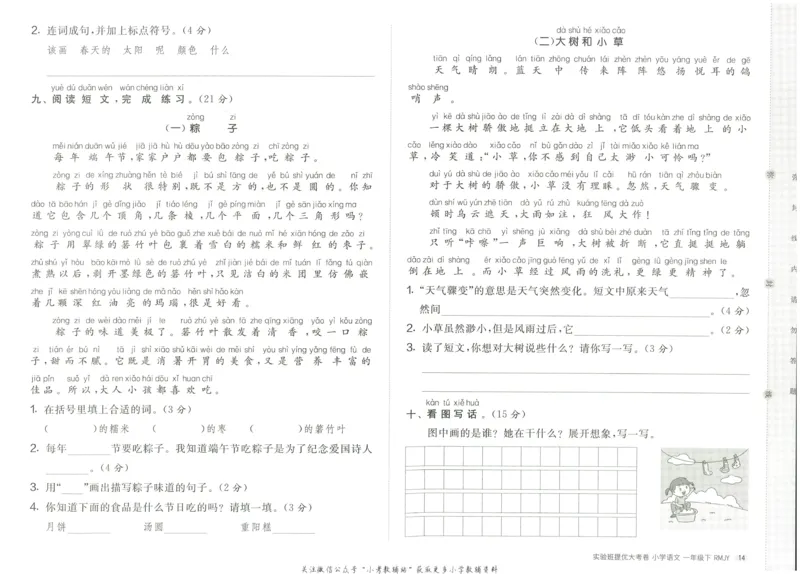 2. 连词成句,并加上标点符号。(4分)
该画 春天的 太阳 呢 颜色 什么
yuè dú duǎn wén wán chéng liàn xí
九、阅读短文,完成练习。(21分)
zòng zi
(一)粽 子
měi nián duān wǔ jié jiā jiā hù hù dōu yào bāo zòng zi chī zòng zi
每年端午节,家家户户都要包粽子,吃粽子。
zòng zi de xíng zhuàng hěn tè bié jì bú shì fāng de yě bú shì yuán de nǐ zhī
粽子的形状很特别,既不是方的,也不是圆的。你知
dào tā bāo hán jǐ gè dǐng jiǎo jǐ tiáo léng jǐ gè píng miàn jǐ gè sān jiǎo xíng ma
道它包含几个顶角,几条棱,几个平面,几个三角形吗?
zòng zi yòng cuì lǜ de ruò zhú yè bāo guǒ zhe xuě bái de nuò mǐ hé xiān hóng de zǎo zi
粽子用翠绿的箬竹叶包裹着雪白的糯米和鲜红的枣子。
zhǔ shú yǐ hòu bāo kāi mò lǜ sè de ruò zhú yè zhǐ jiàn jié bái de mǐ tuán lǐ fǎng fú qiàn
煮熟以后,剥开墨绿色的箬竹叶,只见洁白的米团里仿佛嵌
zhe jǐ kē shēn hóng yóu liàng de mǎ nǎo hěn shì hǎo kàn
着几颗深红油亮的玛瑙,很是好看。
zòng zi de wèi dào měi jí le ruò zhú yè sàn fā zhe qīng xiāng yǎo yì kǒu zòng
粽子的味道美极了。箬竹叶散发着清香,咬一口粽
zi tián ér bú nì tā jì shì xiāo shǔ kāi wèi de měi shí yòu shì yíng yǎng fēng fù de
子,甜而不腻。它既是消暑开胃的美食,又是营养丰富的
jiā pǐn suǒ yǐ dà ren xiǎo hái dōu xǐ huan chī
佳品。所以,大人小孩都喜欢吃。
1. 在括号里填上合适的词。(3分)
( )的糯米 ( )的枣 ( )的箬竹叶
2. 每年______节要吃粽子。我知道端午节吃粽子是为了纪念爱国诗人
______。(4分)
3. 用“____”画出描写粽子味道的句子。(2分)
4. 你知道下面的食品是什么节日吃的吗?请填一填。(3分)
月饼______ 汤圆______ 重阳糕______
dà shù hé xiǎo cǎo
(二)大树和小草
tiān qì qíng lǎng lán tiān zhōng chuán lái zhèn zhèn yōu yáng yuè ěr de gē
天气晴朗。蓝天中传来阵阵悠扬悦耳的鸽
shào shēng
哨声。
yì kē dà shù jiāo ào de tǐng lì zài dà dì shàng tā dī tóu kàn zhe dì shàng de xiǎo
一棵大树骄傲地挺立在大地上,它低头看着地上的小
cǎo lěng xiào dào xiǎo cǎo nǐ bù gǎn dào zì jǐ tài miǎo xiǎo kě lián ma
草,冷笑道:“小草,你不感到自己太渺小可怜吗?”
duì yú dà shù de jiāo ào xiǎo cǎo méi yǒu lǐ cǎi hū rán tiān qì zhòu biàn
对于大树的骄傲,小草没有理睬。忽然,天气骤变。
dùn shí wū yún zhē tiān dà yǔ rú zhù kuáng fēng dà zuò
顿时乌云遮天,大雨如注,狂风大作!
zhǐ tīng kā chā yì shēng jù xiǎng dà shù bèi zhé duàn tā zhí tǐng tǐng de tǎng
只听“咔嚓”一声巨响,大树被折断,它直挺挺地躺
dǎo zài dì shàng ér xiǎo cǎo jīng guò fēng yǔ de xǐ lǐ gèng lǜ gèng jīng shen le
倒在地上。而小草经过风雨的洗礼,更绿更精神了。
1. “天气骤变”的意思是天气突然变化。短文中原来天气____________,忽
然间____________。(4分)
2. 小草虽然渺小,但是风雨过后,它____________。(2分)
3. 读了短文,你想对大树说些什么?请你写一写。(3分)
kàn tú xiě huà
十、看图写话。(15分)
图中画的是谁?她在干什么?展开想象,写一写。
实验班提优大考卷 小学语文 一年级下 RMJY 14
关注微信公众号“小考教辅站”获取更多小学教辅资料
密
封
线
内
请
勿
答
题